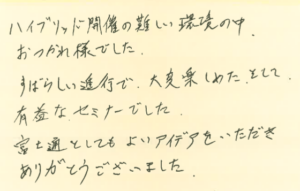 ハイブリッド開催の難しい環境の中、
おつかれ様でした。
すばらしい進行で、大変楽しめた、そして
有益なセミナーでした。
富士通としてもよいアイデアをいただき
ありがとうございました。